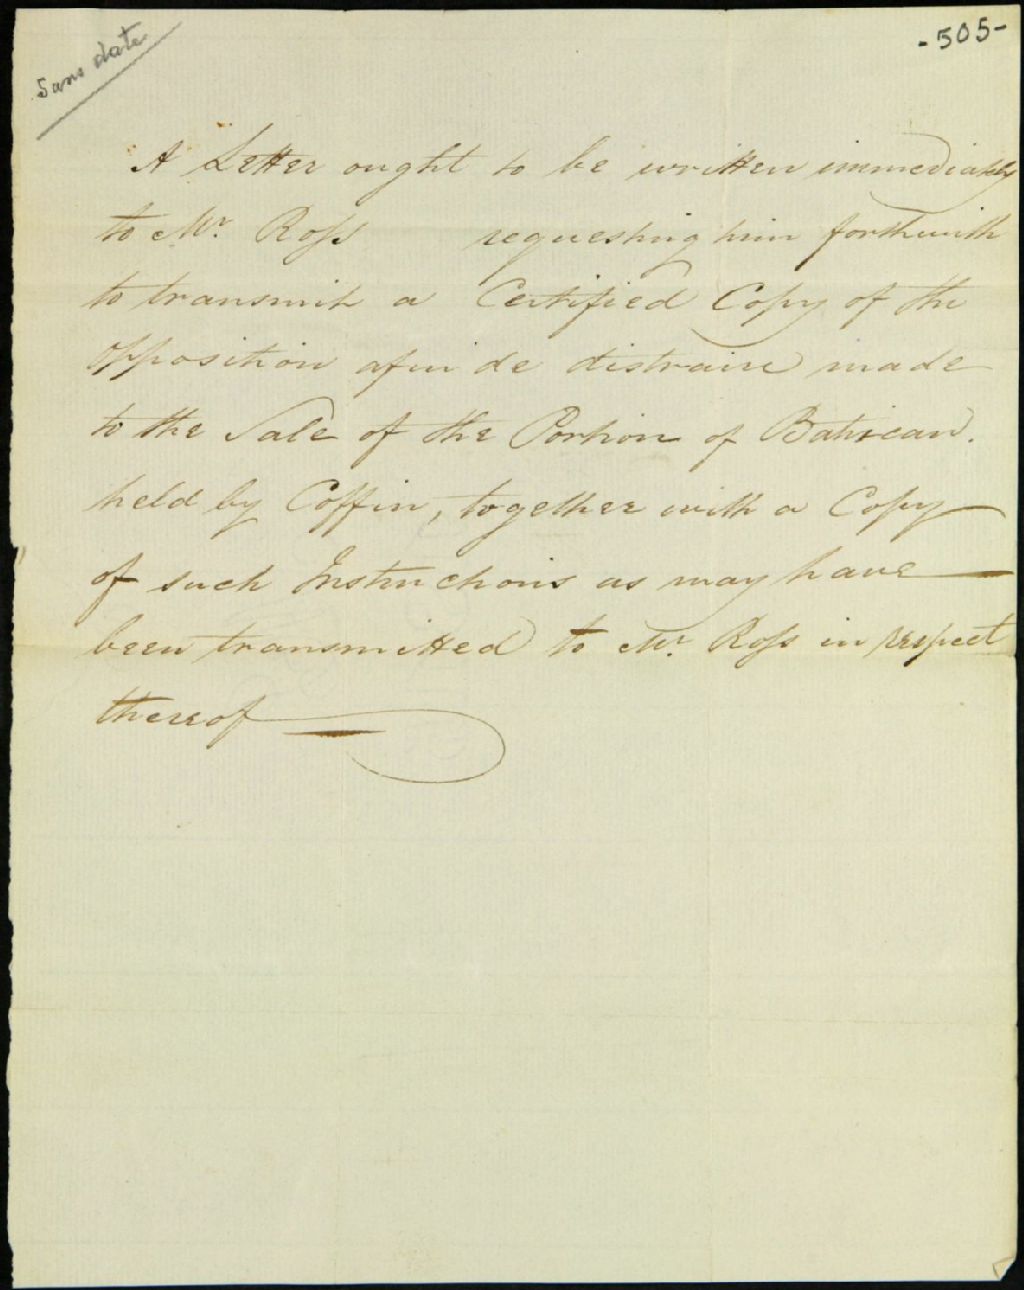 Sans date
-505-
A Letter ought to be written immediately
to Mr. Ross requesting him forthwith
to transmit a Certified Copy of the
opposition afin de distraire made
to the Sale of the Portion of Batiscan.
held by Coffin, together with a Copy
of such Instructions as may have
been transmitted to Mr. Ross in respect
thereof